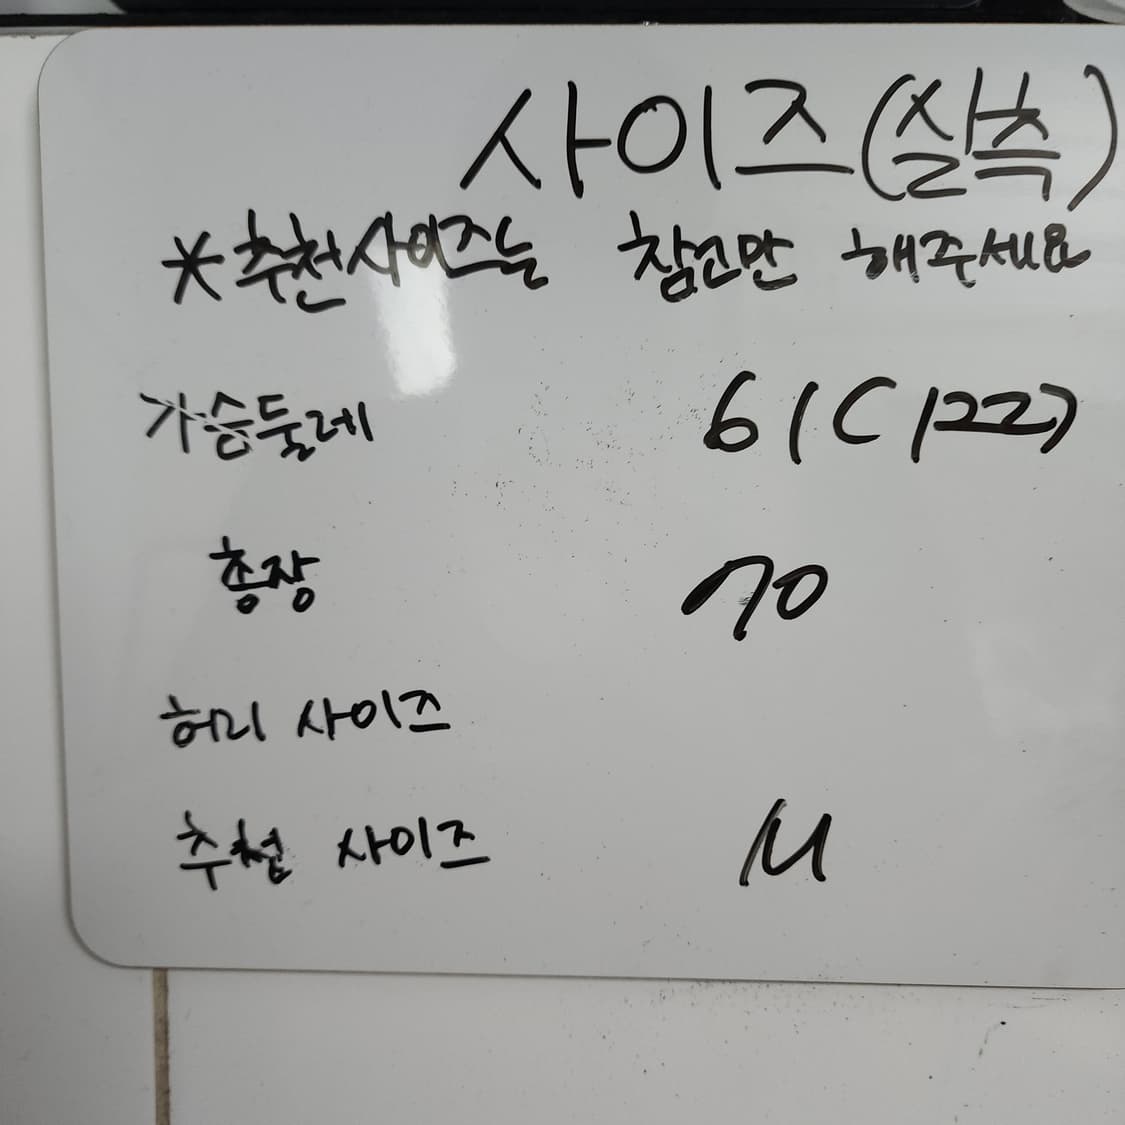 사이즈(실측)
*추천사이즈는 참고만 해주세요
가슴둘레 61(122)
총장 70
허리 사이즈
추천 사이즈 M